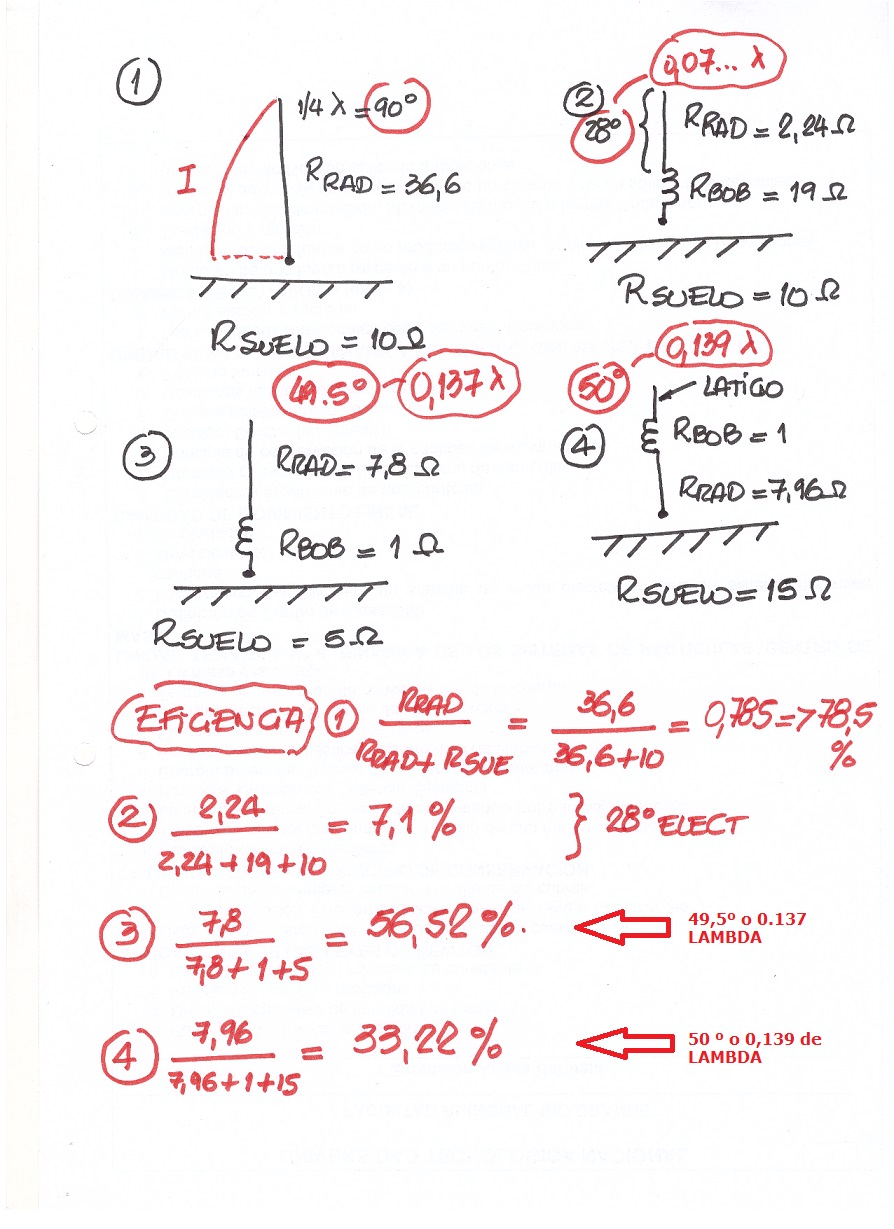 ①
1/4 λ = 90°
I
RRAD = 36,6
RSUELO = 10Ω
②
0,07... λ
28°
RRAD = 2,24 Ω
RBOB = 19 Ω
RSUELO = 10 Ω
③
49.5° 0,137 λ
RRAD = 7,8 Ω
RBOB = 1 Ω
RSUELO = 5Ω
④
50° 0,139 λ
LATIGO
RBOB = 1
RRAD = 7,96Ω
RSUELO = 15 Ω
EFICIENCIA ① RRAD / RRAD + RSUE = 36,6 / 36,6+10 = 0,785 => 78,5 %
② 2,24 / 2,24 + 19 + 10 = 7,1 % } 28° ELECT
③ 7,8 / 7,8 + 1 + 5 = 56,52 %.
49,5º o 0.137
LAMBDA
④ 7,96 / 7,96 + 1 + 15 = 33,22 %
50 º o 0,139 de
LAMBDA